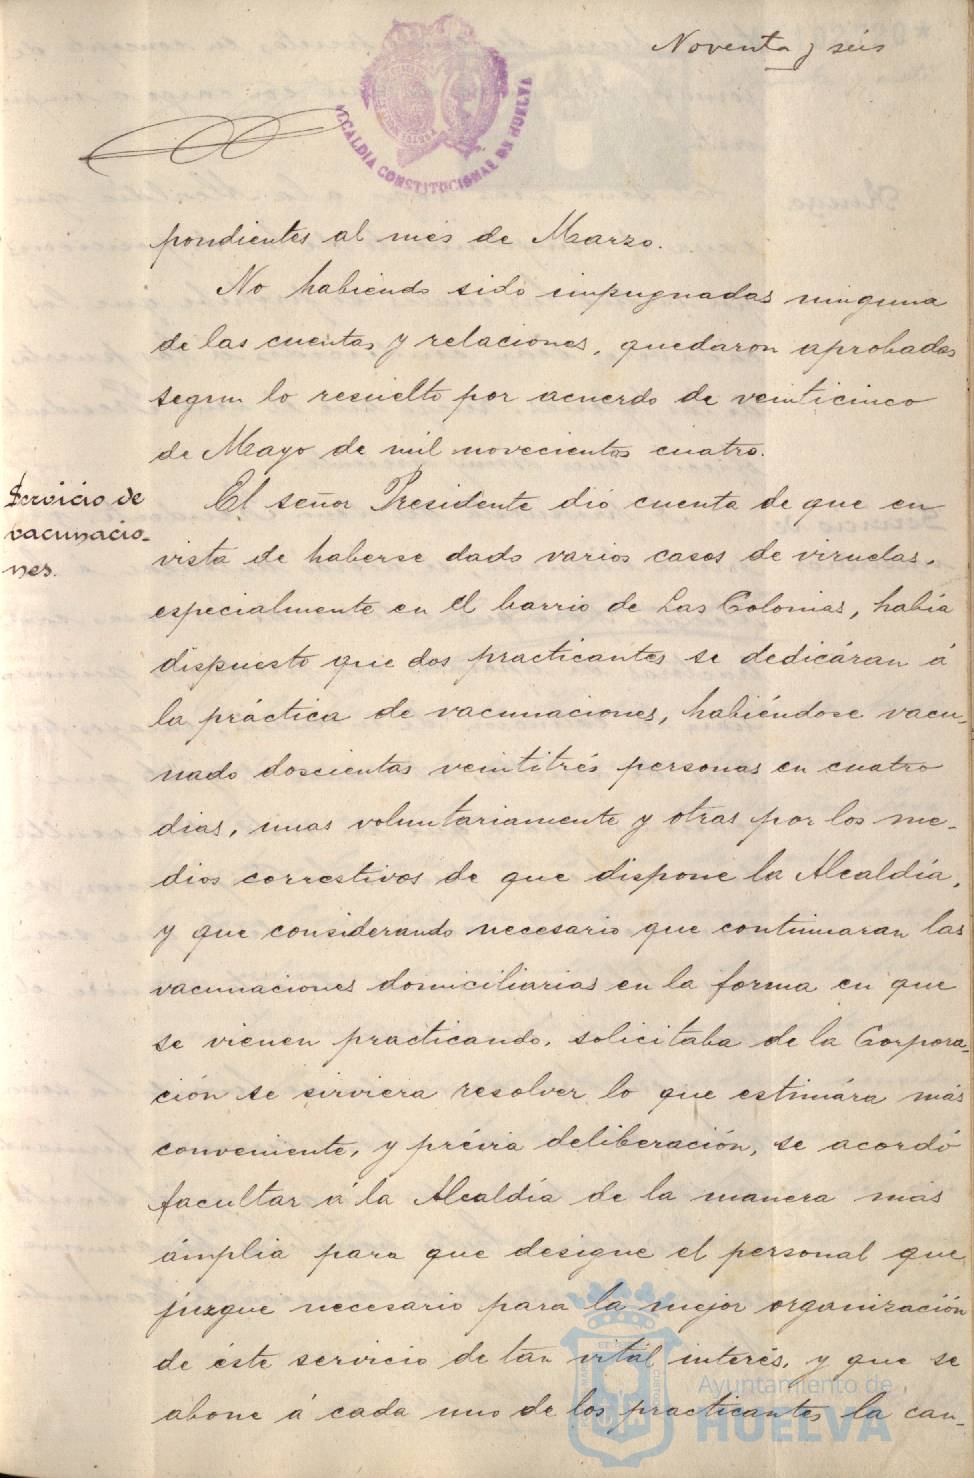 Noventa y séis
ALCALDIA CONSTITUCIONAL DE HUELVA
pondientes al mes de Marzo.
No habiendo sido impugnadas ninguna
de las cuentas y relaciones, quedaron aprobadas
segun lo resuelto por acuerdo de veinticinco
de Mayo de mil novecientos cuatro.
Servicio de
vacunacio-
nes.
El señor Presidente dió cuenta de que en
vista de haberse dado varios casos de viruelas,
especialmente en el barrio de Las Colonias, había
dispuesto que dos practicantes se dedicáran á
la práctica de vacunaciones, habiéndose vacu-
nado doscientas veintitrés personas en cuatro
dias, unas voluntariamente y otras por los me-
dios correctivos de que dispone la Alcaldía,
y que considerando necesario que continuaran las
vacunaciones domiciliarias en la forma en que
se vienen practicando, solicitaba de la Corpora-
ción se sirviera resolver lo que estimára más
conveniente, y prévia deliberación, se acordó
facultar á la Alcaldía de la manera más
ámplia para que designe el personal que
juzgue necesario para la mejor organización
de éste servicio de tan vitál interés, y que se
abone á cada uno de los practicantes la can-
Ayuntamiento de
HUELVA